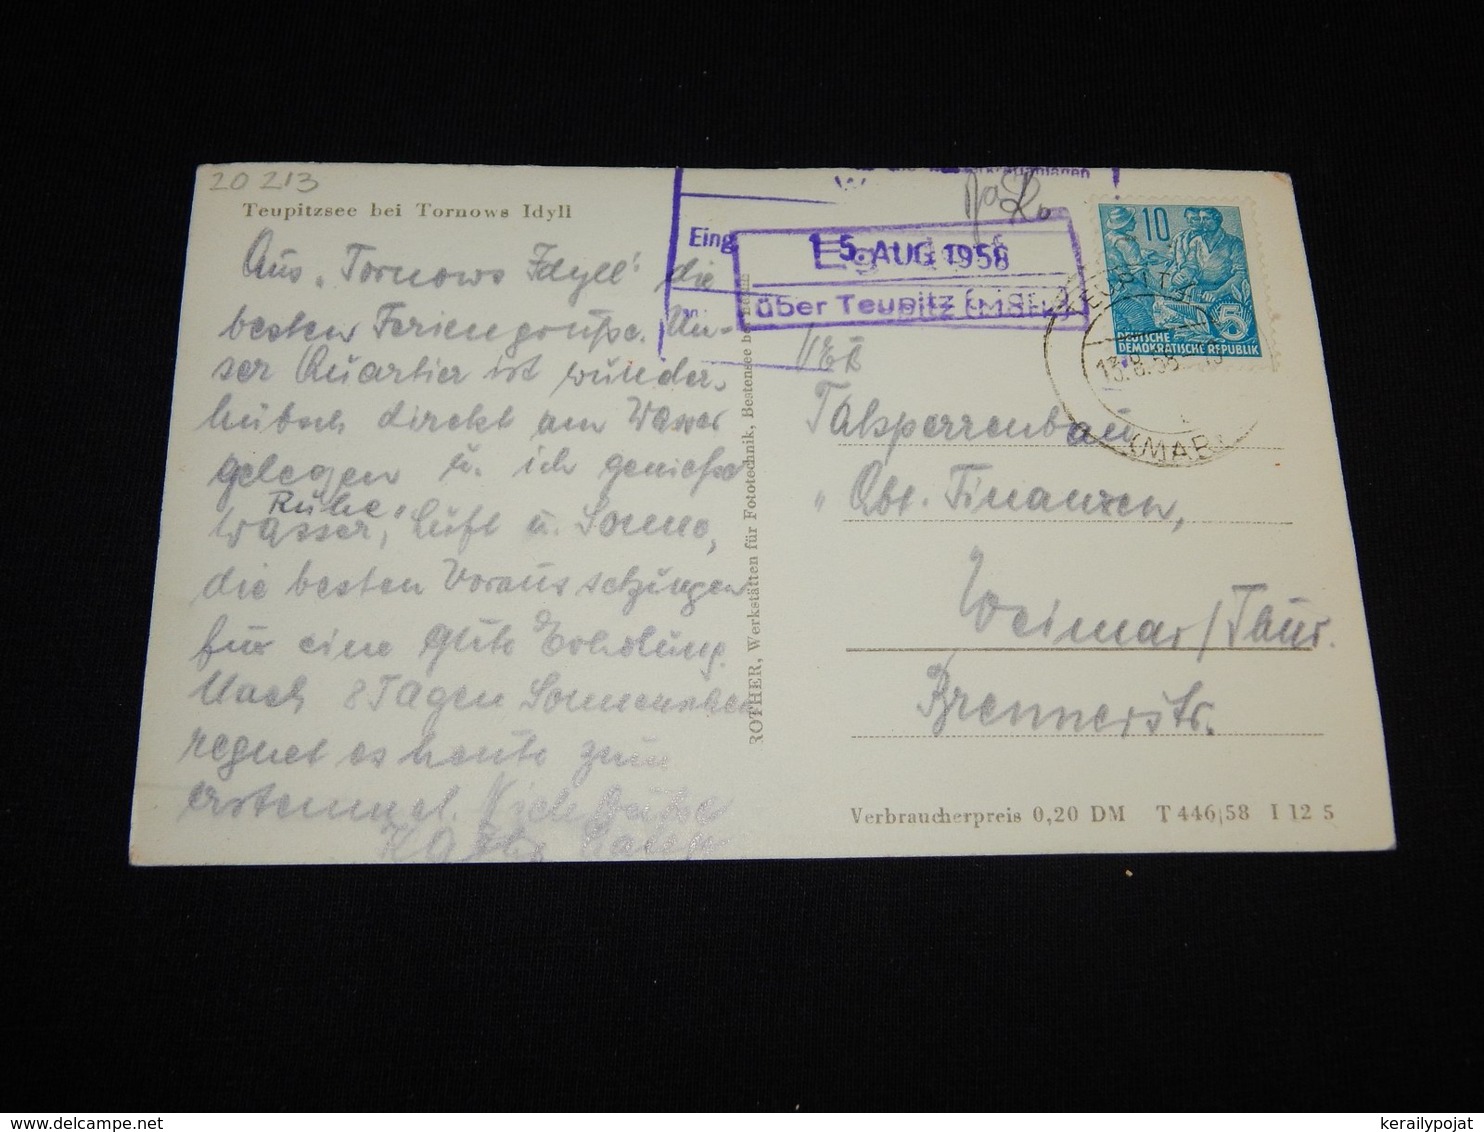 20 213
Teupitzsee bei Tornows Idyll
Aus „Tornows Idyll" die
besten Feriengrüße. Un-
ser Quartier ist wunder-
hübsch direkt am Wasser
gelegen u. ich genieße
Ruhe,
Wasser, Luft u. Sonne,
die besten Voraussetzungen
für eine gute Erholung.
Nach 8 Tagen Sonnenschein
regnet es heute zum
erstenmal.
ROTHER, Werkstätten für Fototechnik, Bestensee bei
Eing.
15. AUG. 1958
über Teupitz
10
5
DEUTSCHE
DEMOKRATISCHE REPUBLIK
TEUPITZ
13.8.58
(MARK)
VEB
Talsperrenbau
Abt. Finanzen,
Weimar/Thür.
Brennerstr.
Verbraucherpreis 0,20 DM T 446/58 I 12 5
kerailypojat